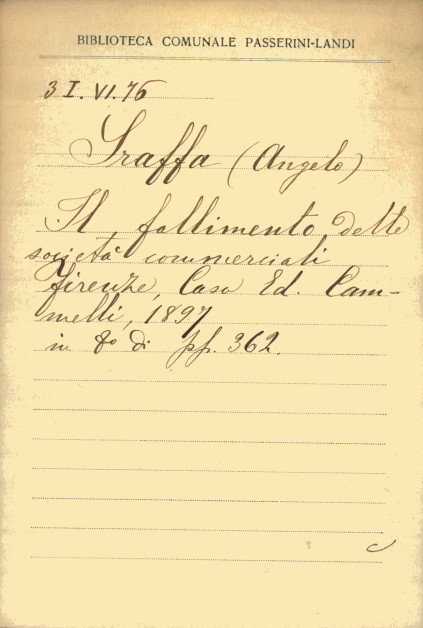 BIBLIOTECA COMUNALE PASSERINI-LANDI
3 I. VI. 76
Sraffa (Angelo)
Il fallimento delle
società commerciali
Firenze, Casa Ed. Cam-
melli, 1897
in 8° di pp. 362.